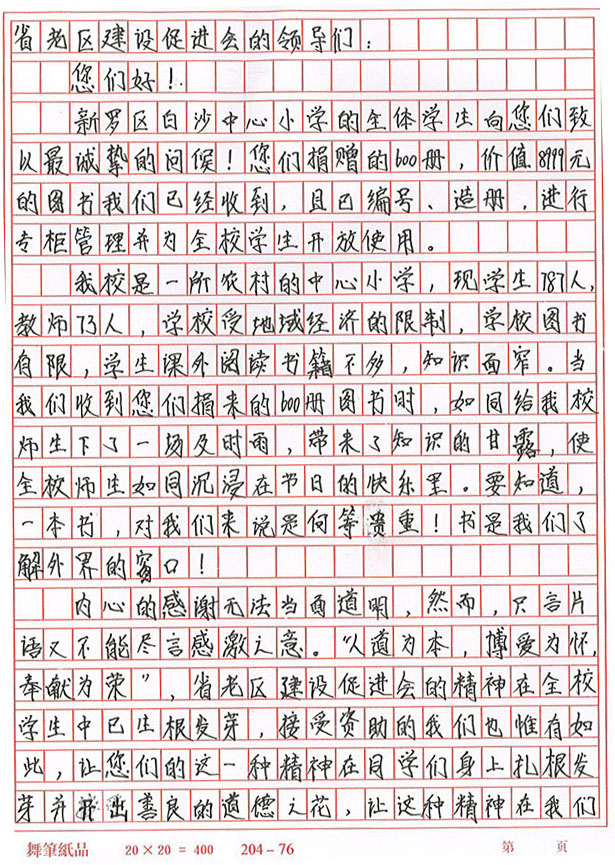 省老区建设促进会的领导们：
您们好！
新罗区白沙中心小学的全体学生向您们致
以最诚挚的问候！您们捐赠的600册，价值8999元
的图书我们已经收到，且已编号、造册，进行
专柜管理并为全校学生开放使用。
我校是一所农村的中心小学，现学生787人，
教师73人，学校受地域经济的限制，学校图书
自限，学生课外阅读书籍不多，知识面窄。当
我们收到您们捐来的600册图书时，如同给我校
师生下了一场及时雨，带来了知识的甘露，使
全校师生如同沉浸在节日的快乐里。要知道，
一本书，对我们来说是何等贵重！书是我们了
解外界的窗口！
内心的感谢无法当面道明，然而，只言片
语又不能尽言感激之意。“人道为本，博爱为怀，
奉献为荣”，省老区建设促进会的精神在全校
学生中已生根发芽，接受资助的我们也惟有如
此，让您们的这一种精神在同学们身上扎根发
芽并开出善良的道德之花，让这种精神在我们
舞筆紙品 20×20=400 204-76 第 页